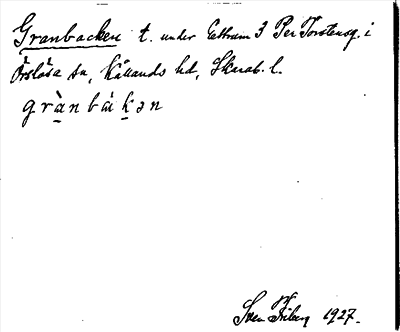 Granbacken t. under Gettram 3 Per Torstensg. i
Örslösa sn, Kållands hd, Skarab. l.
grànbàkən
Sven Friberg 1927.